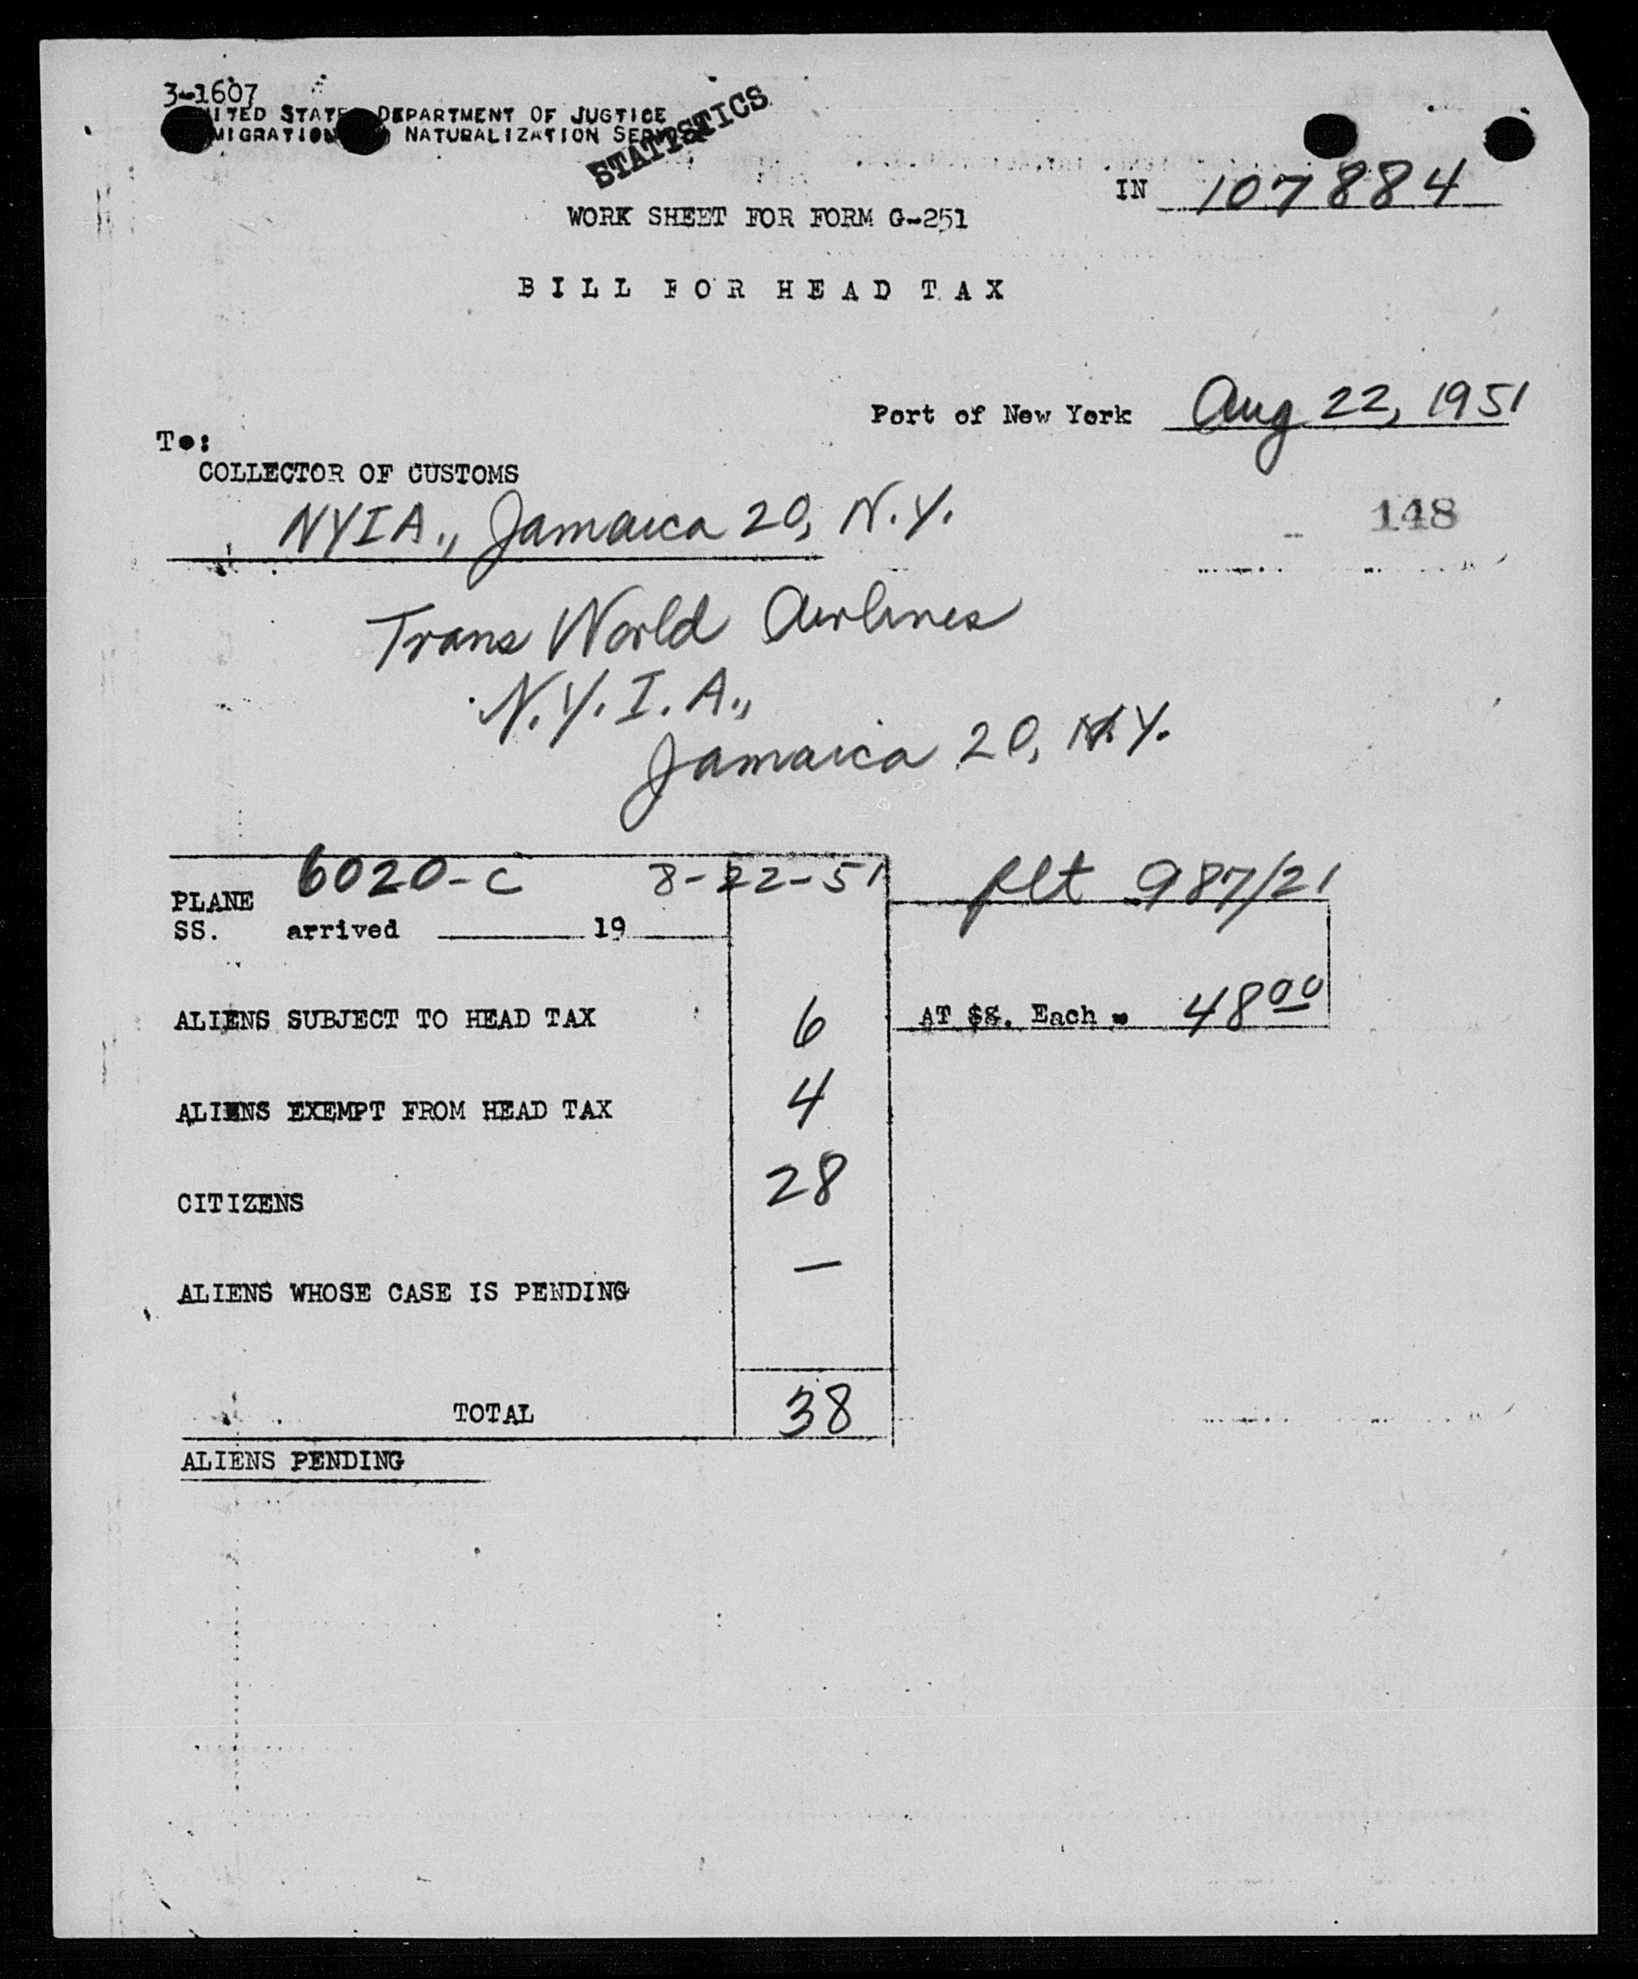 3-1607
ITED STATE DEPARTMENT OF JUSTICE
MIGRATION NATURALIZATION SERVICE
STATISTICS
IN 107884
WORK SHEET FOR FORM G-251
BILL FOR HEAD TAX
Port of New York Aug 22, 1951
To:
COLLECTOR OF CUSTOMS
NYIA., Jamaica 20, N.Y.
148
Trans World Airlines
N.Y.I.A.,
Jamaica 20, N.Y.
6020-C 8-22-51 flt 987/21
PLANE
SS. arrived 19
ALIENS SUBJECT TO HEAD TAX 6 AT $8. Each = 48 00
ALIENS EXEMPT FROM HEAD TAX 4
CITIZENS 28
ALIENS WHOSE CASE IS PENDING —
TOTAL 38
ALIENS PENDING